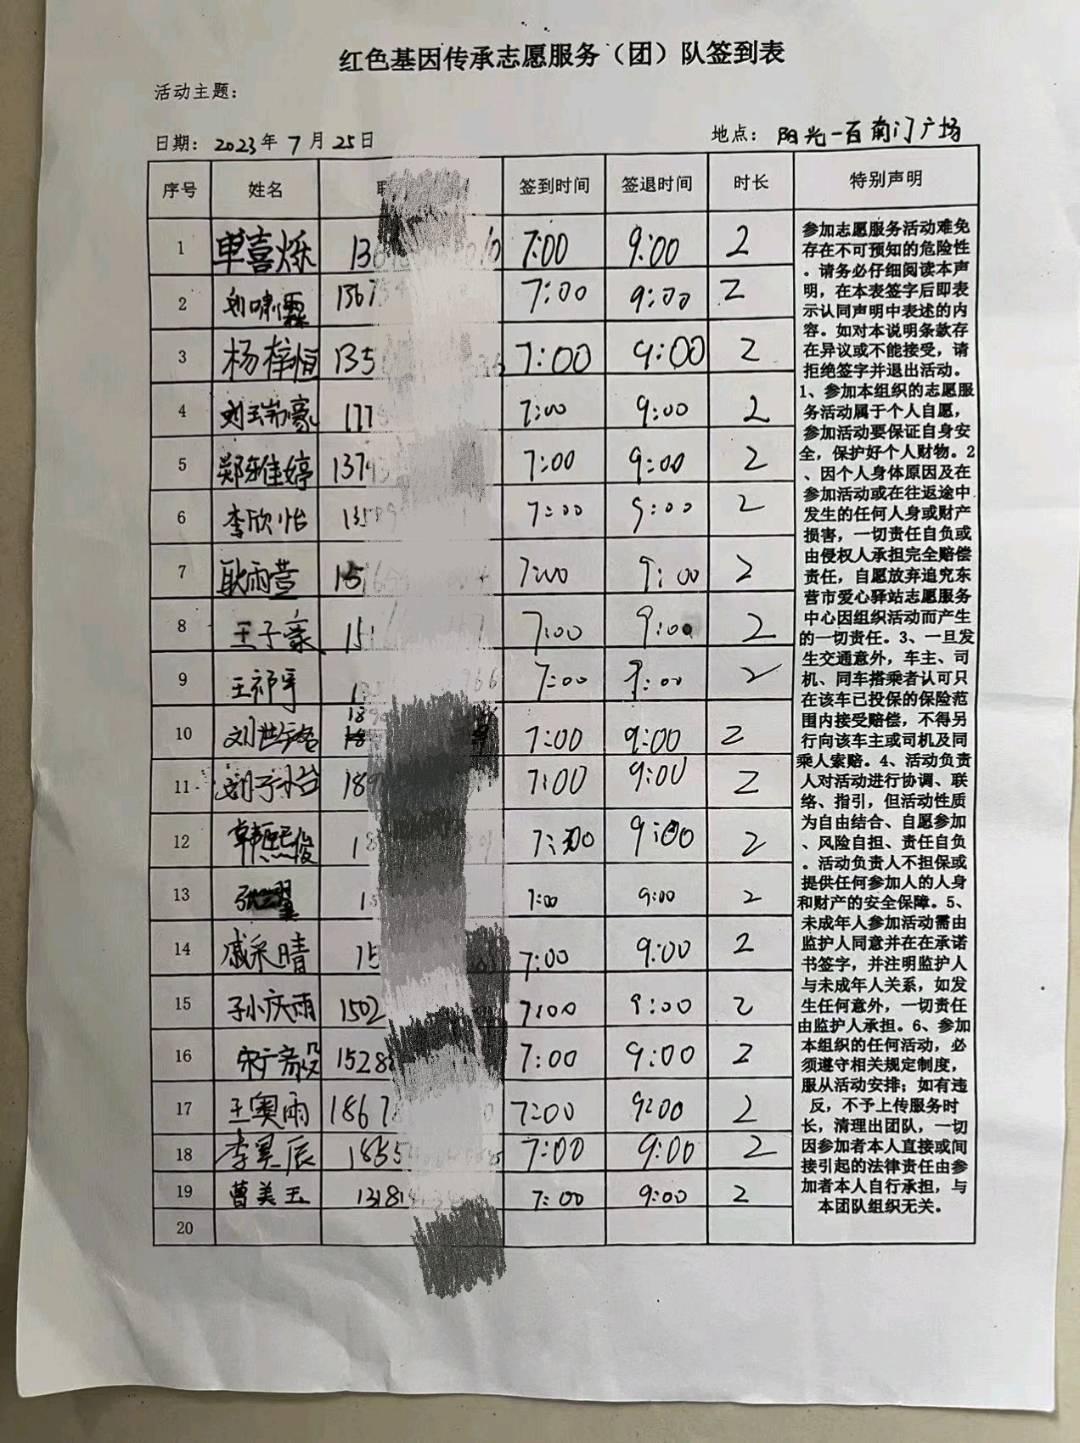 红色基因传承志愿服务（团）队签到表
活动主题：
日期： 2023年 7 月 25日
地点： 阳光一百南门广场
序号 姓名 签到时间 签退时间 时长 特别声明
1 单喜烁 7:00 9:00 2
2 刘啸霖 7:00 9:00 2
3 杨梓恒 135 7:00 9:00 2
4 刘瑞豪 177 7:00 9:00 2
5 郑雅婷 7:00 9:00 2
6 李欣怡 7:00 9:00 2
7 耿雨萱 7:00 9:00 2
8 王子豪 7:00 9:00 2
9 王祁宇 7:00 9:00 2
10 刘世 7:00 9:00 2
11 刘子 7:00 9:00 2
12 韩熙俊 7:00 9:00 2
13 7:00 9:00 2
14 戚采晴 7:00 9:00 2
15 孙庆雨 1502 7:00 9:00 2
16 宋广毅 1528 7:00 9:00 2
17 王奥雨 1867 7:00 9:00 2
18 李昊辰 1855 7:00 9:00 2
19 曹美玉 1318 7:00 9:00 2
20
参加志愿服务活动难免
存在不可预知的危险性
。请务必仔细阅读本声
明，在本表签字后即表
示认同声明中表述的内
容。如对本说明条款存
在异议或不能接受，请
拒绝签字并退出活动。
1、参加本组织的志愿服
务活动属于个人自愿，
参加活动要保证自身安
全，保护好个人财物。2
、因个人身体原因及在
参加活动或在往返途中
发生的任何人身或财产
损害，一切责任自负或
由侵权人承担完全赔偿
责任，自愿放弃追究东
营市爱心驿站志愿服务
中心因组织活动而产生
的一切责任。3、一旦发
生交通意外，车主、司
机、同车搭乘者认可只
在该车已投保的保险范
围内接受赔偿，不得另
行向该车主或司机及同
乘人索赔。4、活动负责
人对活动进行协调、联
络、指引，但活动性质
为自由结合、自愿参加
、风险自担、责任自负
。活动负责人不担保或
提供任何参加人的人身
和财产的安全保障。5、
未成年人参加活动需由
监护人同意并在在承诺
书签字，并注明监护人
与未成年人关系，如发
生任何意外，一切责任
由监护人承担。6、参加
本组织的任何活动，必
须遵守相关规定制度，
服从活动安排；如有违
反，不予上传服务时
长，清理出团队，一切
因参加者本人直接或间
接引起的法律责任由参
加者本人自行承担，与
本团队组织无关。